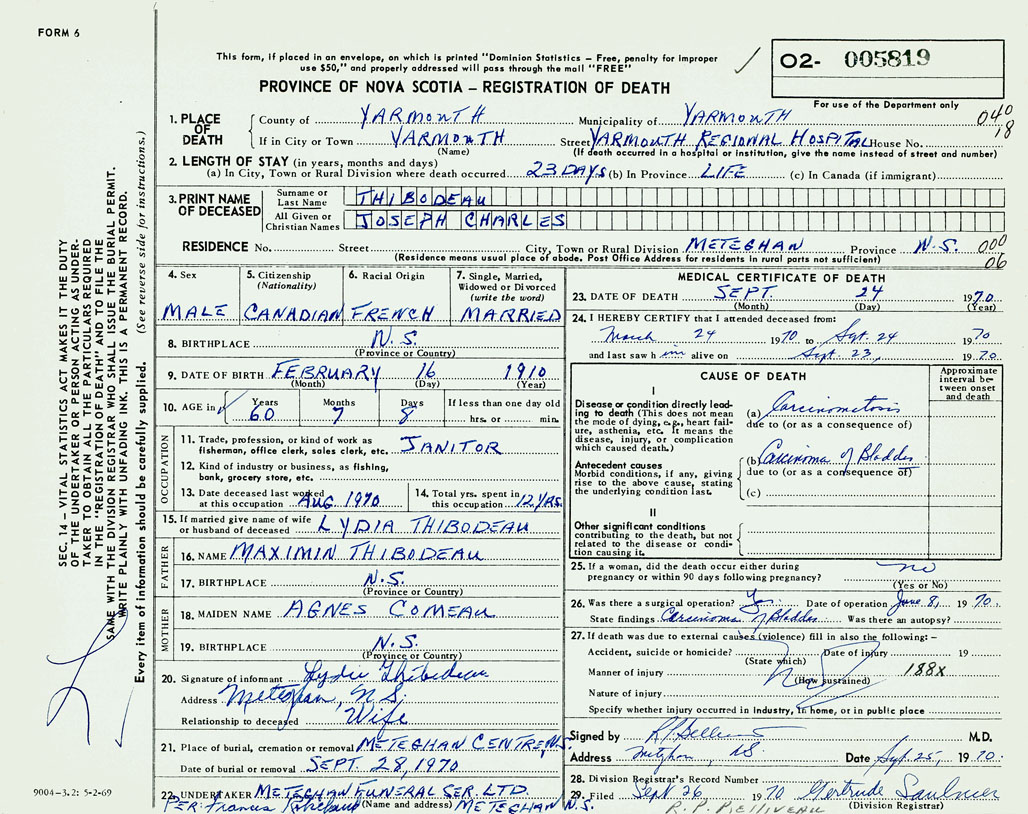 FORM 6
This form, if placed in an envelope, on which is printed "Dominion Statistics – Free, penalty for improper
use $50," and properly addressed will pass through the mail "FREE"
O2- 005819
PROVINCE OF NOVA SCOTIA – REGISTRATION OF DEATH
For use of the Department only
040
18
1. PLACE OF DEATH County of YARMOUTH Municipality of YARMOUTH
If in City or Town YARMOUTH Street YARMOUTH REGIONAL HOSPITAL House No.
(Name) (If death occurred in a hospital or institution, give the name instead of street and number)
2. LENGTH OF STAY (in years, months and days)
(a) In City, Town or Rural Division where death occurred 23 DAYS (b) In Province LIFE (c) In Canada (if immigrant)
3. PRINT NAME OF DECEASED Surname or Last Name THIBODEAU
All Given or Christian Names JOSEPH CHARLES
RESIDENCE No. Street City, Town or Rural Division METEGHAN Province N.S. 000
(Residence means usual place of abode. Post Office Address for residents in rural parts not sufficient) 06
4. Sex
MALE
5. Citizenship
(Nationality)
CANADIAN
6. Racial Origin
FRENCH
7. Single, Married,
Widowed or Divorced
(write the word)
MARRIED
8. BIRTHPLACE N.S.
(Province or Country)
9. DATE OF BIRTH FEBRUARY 16 1910
(Month) (Day) (Year)
10. AGE in Years 60 Months 7 Days 8 If less than one day old
hrs. or min.
OCCUPATION
11. Trade, profession, or kind of work as
fisherman, office clerk, sales clerk, etc. JANITOR
12. Kind of industry or business, as fishing,
bank, grocery store, etc.
13. Date deceased last worked
at this occupation AUG 1970
14. Total yrs. spent in
this occupation 12 YRS.
15. If married give name of wife
or husband of deceased LYDIA THIBODEAU
FATHER
16. NAME MAXIMIN THIBODEAU
17. BIRTHPLACE N.S.
(Province or Country)
MOTHER
18. MAIDEN NAME AGNES COMEAU
19. BIRTHPLACE N.S.
(Province or Country)
20. Signature of informant Lydie Thibodeau
Address Meteghan, N.S.
Relationship to deceased Wife
21. Place of burial, cremation or removal METEGHAN CENTRE, N.S.
Date of burial or removal SEPT. 28, 1970
22. UNDERTAKER METEGHAN FUNERAL SER. LTD.
PER: Francis (Name and address) METEGHAN N.S.
MEDICAL CERTIFICATE OF DEATH
23. DATE OF DEATH SEPT. 24 1970
(Month) (Day) (Year)
24. I HEREBY CERTIFY that I attended deceased from:
March 24 1970 to Sept. 24 1970
and last saw h im alive on Sept. 23, 1970
CAUSE OF DEATH
Approximate
interval between
onset
and death
I
Disease or condition directly leading
to death (This does not mean
the mode of dying, e.g., heart failure,
asthenia, etc. It means the
disease, injury, or complication
which caused death.)
(a) Carcinomatosis
due to (or as a consequence of)
Antecedent causes
Morbid conditions, if any, giving
rise to the above cause, stating
the underlying condition last.
(b) Carcinoma of Bladder
due to (or as a consequence of)
(c)
II
Other significant conditions
contributing to the death, but not
related to the disease or condition
causing it.
25. If a woman, did the death occur either during
pregnancy or within 90 days following pregnancy? no
(Yes or No)
26. Was there a surgical operation? Yes. Date of operation June 8, 1970.
State findings Carcinoma of Bladder Was there an autopsy?
27. If death was due to external causes (violence) fill in also the following: –
Accident, suicide or homicide? Date of injury 19
(State which)
Manner of injury 188X
(How sustained)
Nature of injury
Specify whether injury occurred in industry, in home, or in public place
Signed by M.D.
Address Meteghan NS Date Sept. 25, 1970.
28. Division Registrar's Record Number
29. Filed Sept 26 1970 Gertrude Saulnier
(Division Registrar)
R. P. BELLIVEAU
SEC. 14 – VITAL STATISTICS ACT MAKES IT THE DUTY
OF THE UNDERTAKER OR PERSON ACTING AS UNDERTAKER
TO OBTAIN ALL THE PARTICULARS REQUIRED
IN THE "REGISTRATION OF DEATH" AND TO FILE THE
SAME WITH THE DIVISION REGISTRAR WHO SHALL ISSUE THE BURIAL PERMIT.
WRITE PLAINLY WITH UNFADING INK. THIS IS A PERMANENT RECORD.
Every item of information should be carefully supplied. (See reverse side for instructions.)
9004-3.2: 5-2-69